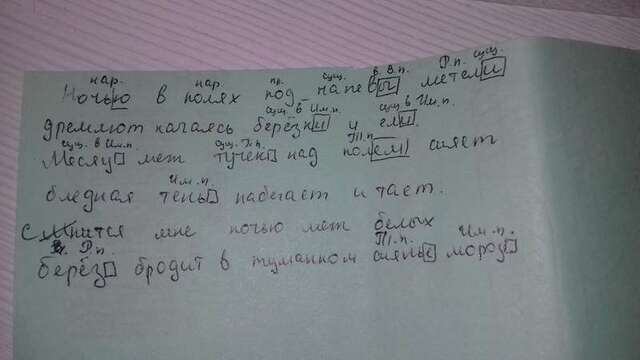 нар. нар. пр. сущ. в В.п. Р.п. сущ.
Ночью в полях под напевы метели
сущ. в Им.п. сущ. в Им.п.
дремлют качаясь берёзки и ели
сущ. в Им.п. сущ. Тв.п.
Месяц меж тучек над полем сияет
Им.п.
бледная тень набегает и тает.
Снится мне ночью меж белых
Р.п. Им.п.
берёз бродит в туманном сиянье мороз